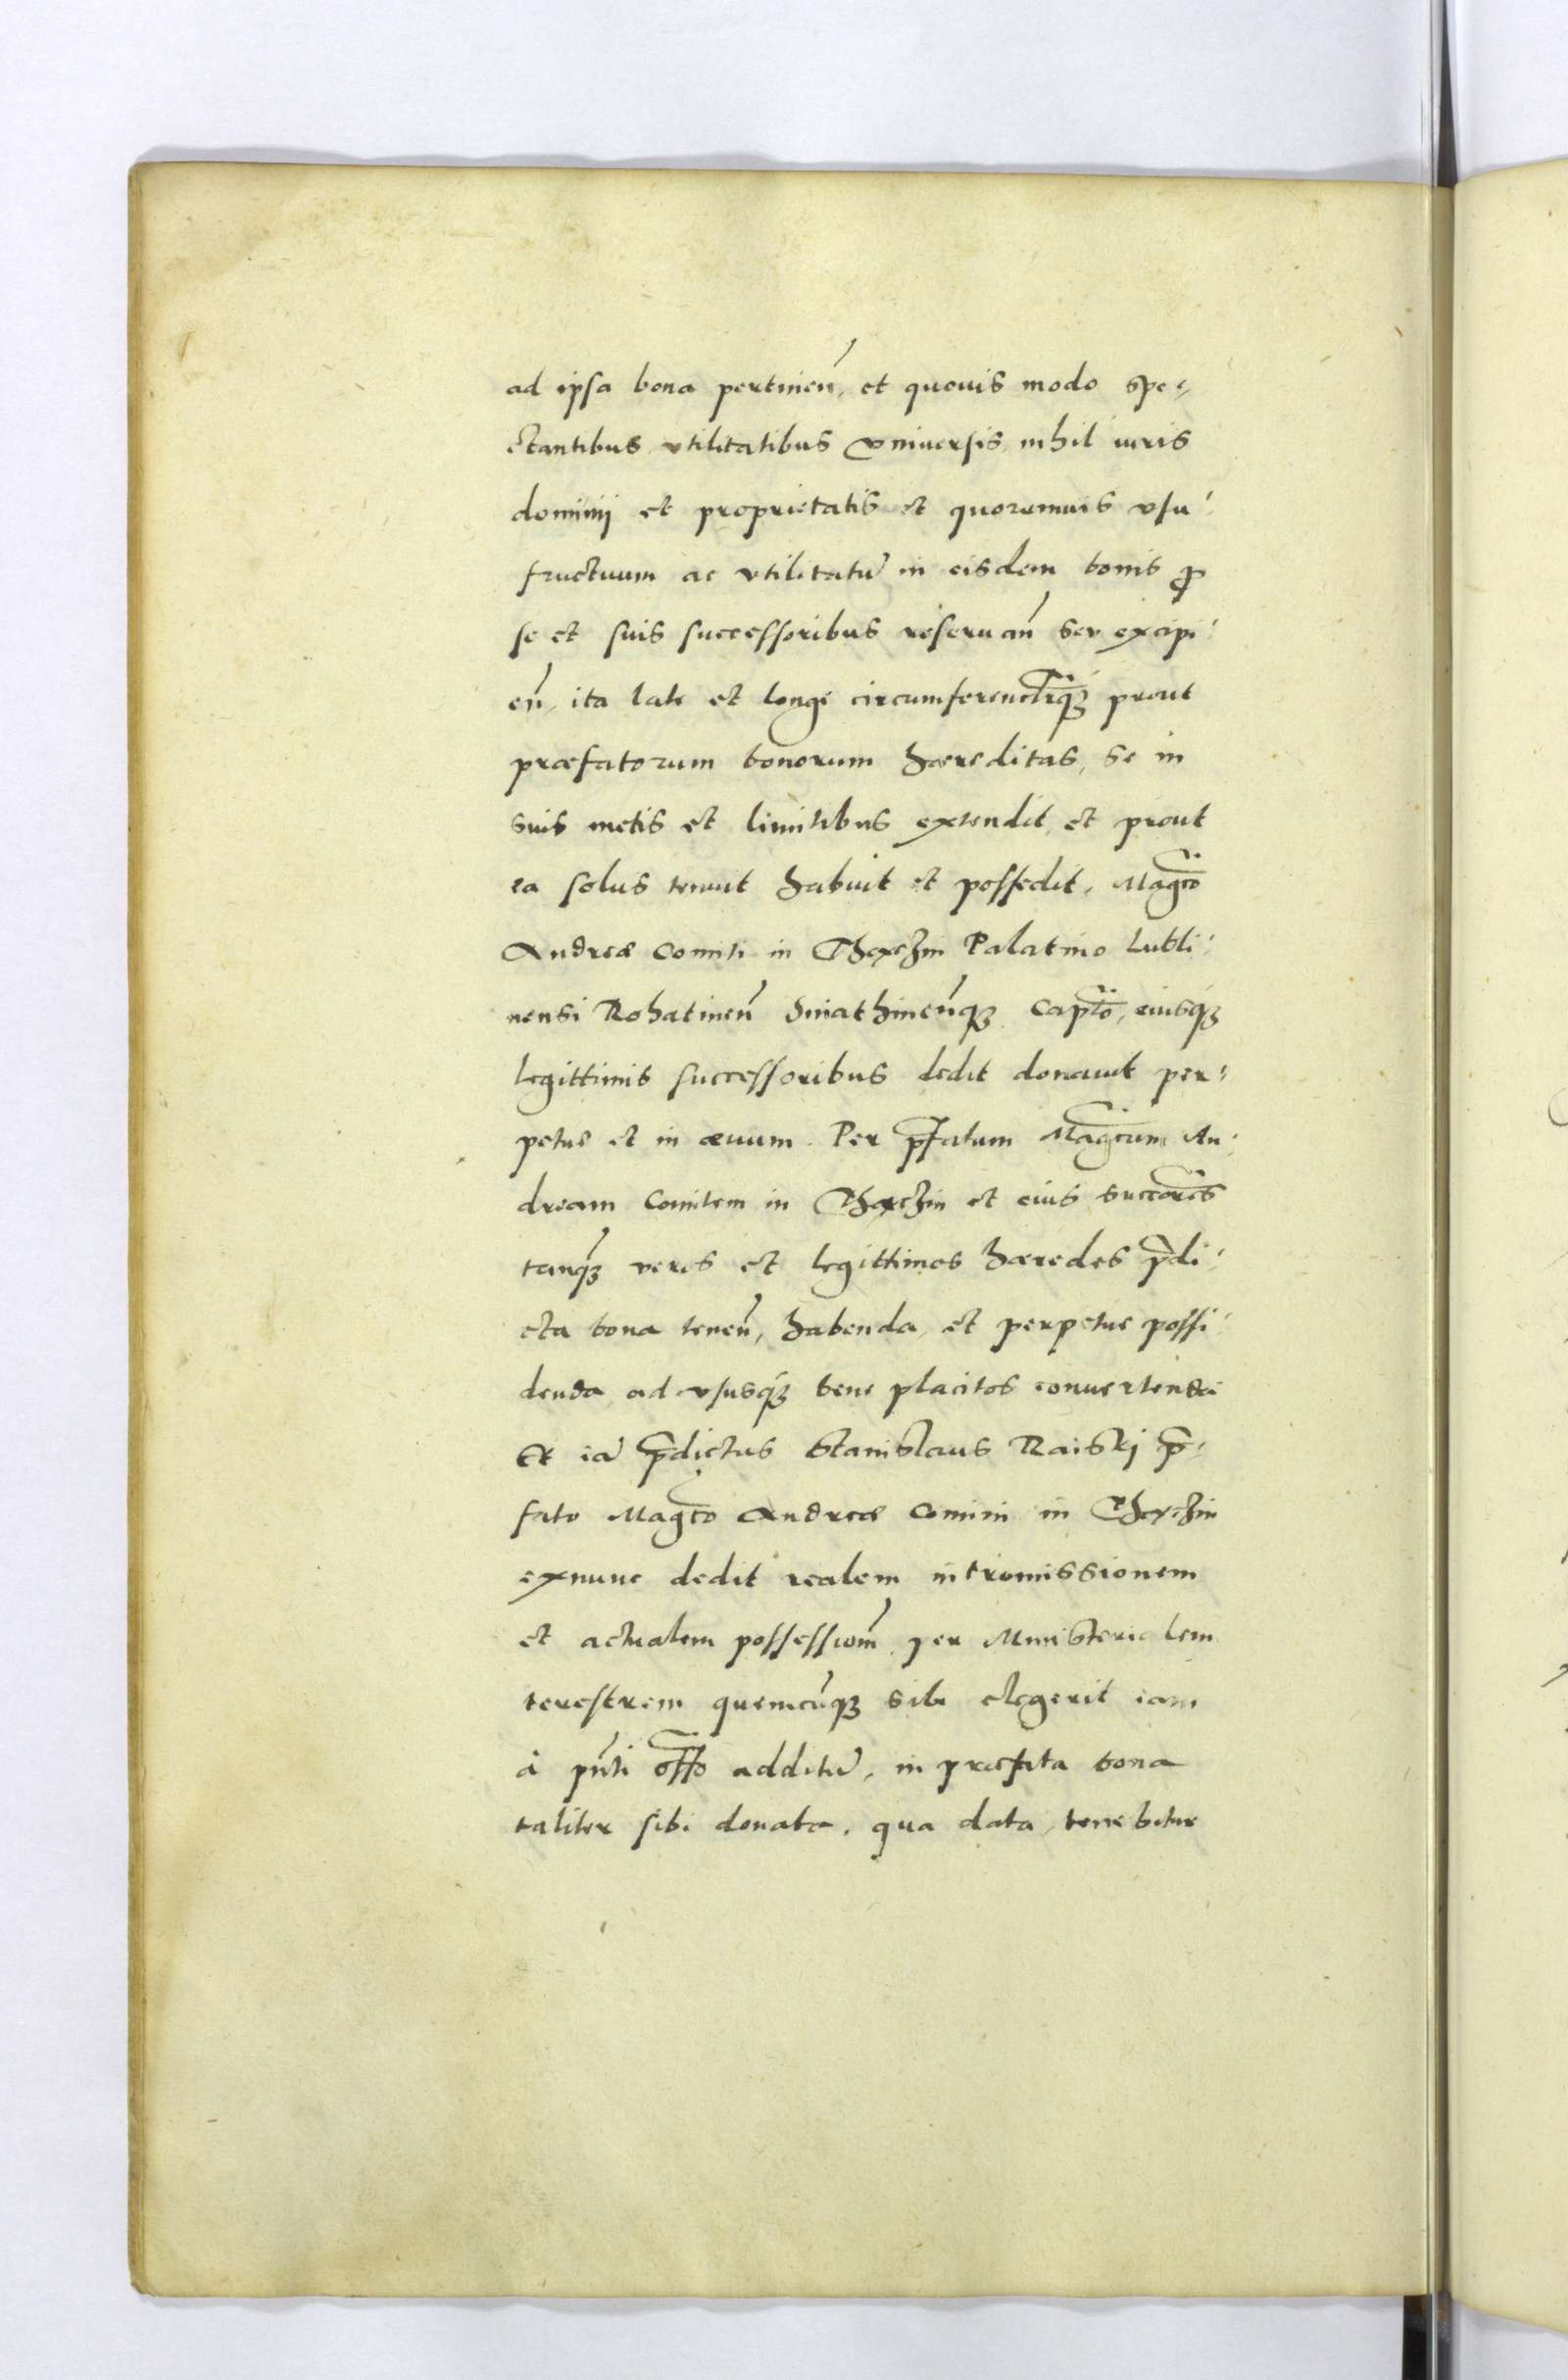 ad ipsa bona pertinen̄, et quouis modo spe-
ctantibus vtilitatibus vniuersis nihil iuris
dominij et proprietatis et quorumuis vsu-
fructuum ac vtilitatū in eisdem bonis ꝓ
se et suis successoribus reseruan̄ seu excipi-
en̄, ita late et longe circumferencr̄qꝫ prout
praefatorum bonorum haereditas, se in
suis metis et limitibus extendit, et prout
ea solus tenuit habuit et possedit. Magco̅
Andreae Comiti in Thexchin Palatino Lubli-
nensi Rohatinen̄ Sniathinen̄qꝫ Capto̅, eiusqꝫ
legittimis successoribus dedit donauit per-
petue et in aeuum. Per p̄fatum Magcum̅ An-
dream Comitem in Thexchin et eius succores̅
tanqꝫ veros et legittimos haeredes p̄di-
cta bona tenen̄, habenda, et perpetue possi-
denda ad vsusqꝫ bene placitos conuertenda
Et iā p̄dictus Stanislaus Raiskj p̄-
fato Magco̅ Andreae Comiti in Thexchin
exnunc dedit realem intromissionem
et actualem possessiom̄ per Ministerialem
terestrem quemcūqꝫ sibi elegerit iam
à pn̄ti offo̅ additū, in praefata bona
taliter sibi donata. qua data, tenebitur